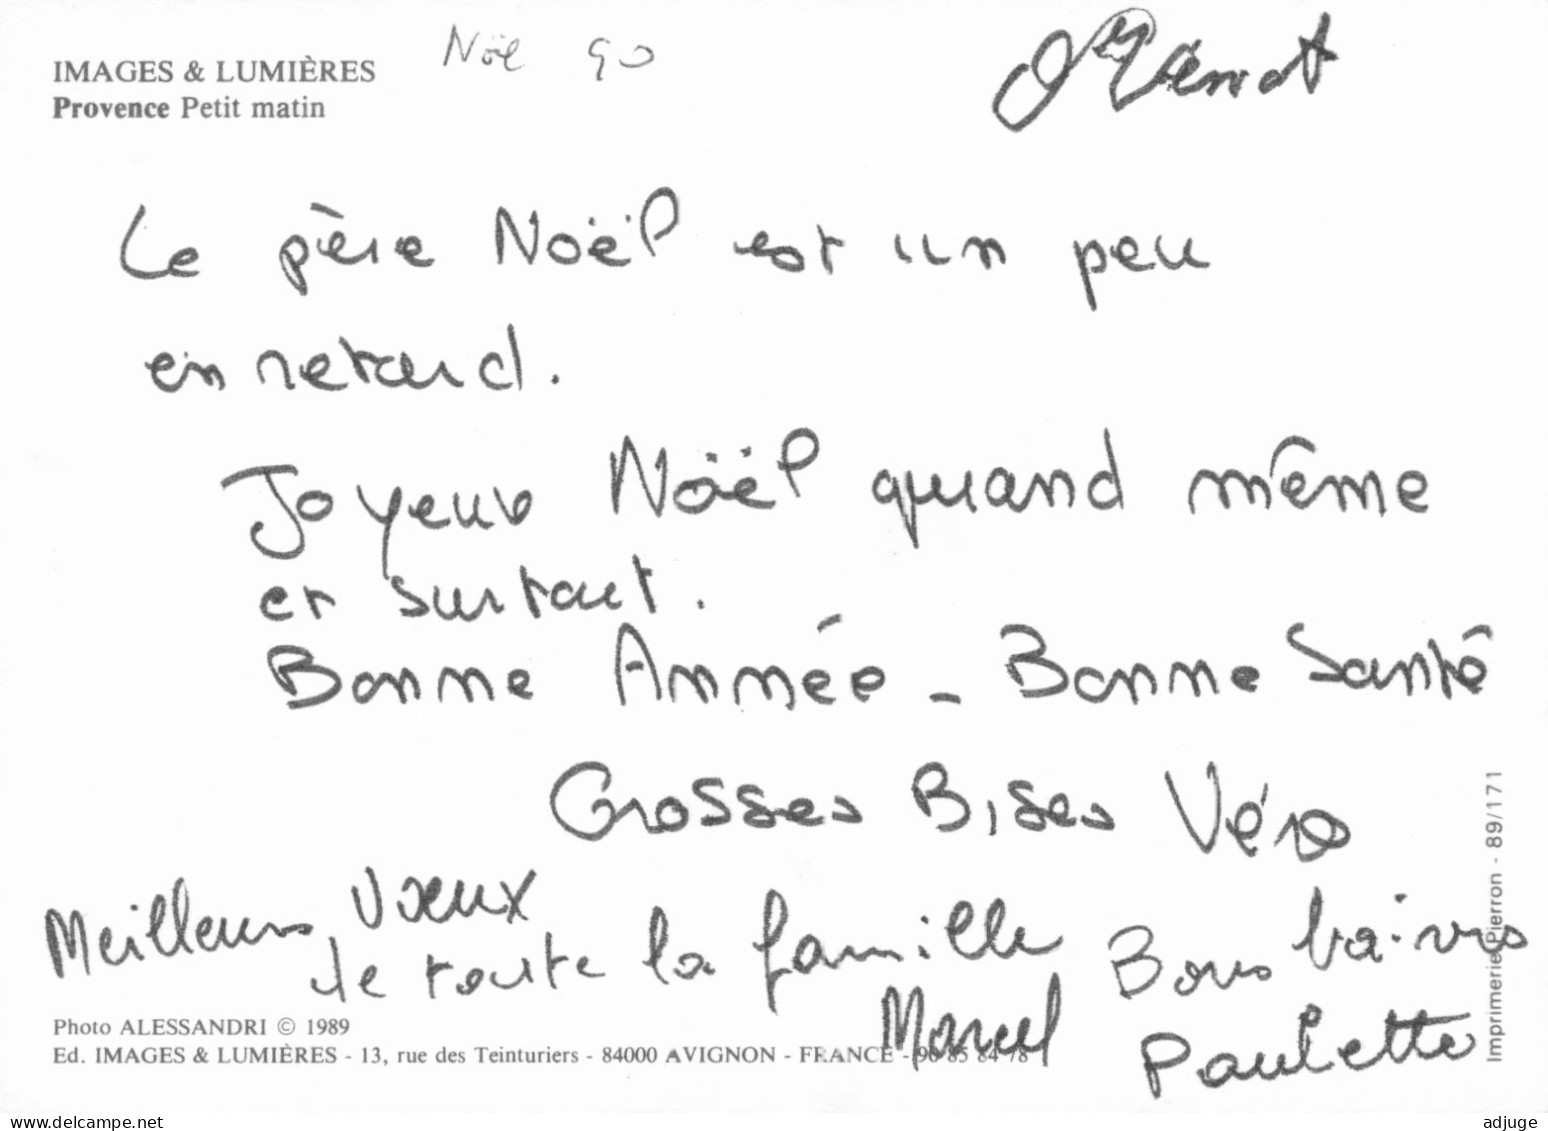 IMAGES & LUMIÈRES
Provence Petit matin
Noël 90
Le père Noël est un peu
en retard.
Joyeux Noël quand même
et surtout.
Bonne Année - Bonne Santé
Grosses Bises Véro
Meilleurs Voeux
de toute la famille
Marcel
Bons baisers
Paulette
Photo ALESSANDRI © 1989
Ed. IMAGES & LUMIÈRES - 13, rue des Teinturiers - 84000 AVIGNON - FRANCE - 90 85 84 78
Imprimerie Pierron - 89/171
www.delcampe.net
adjuge